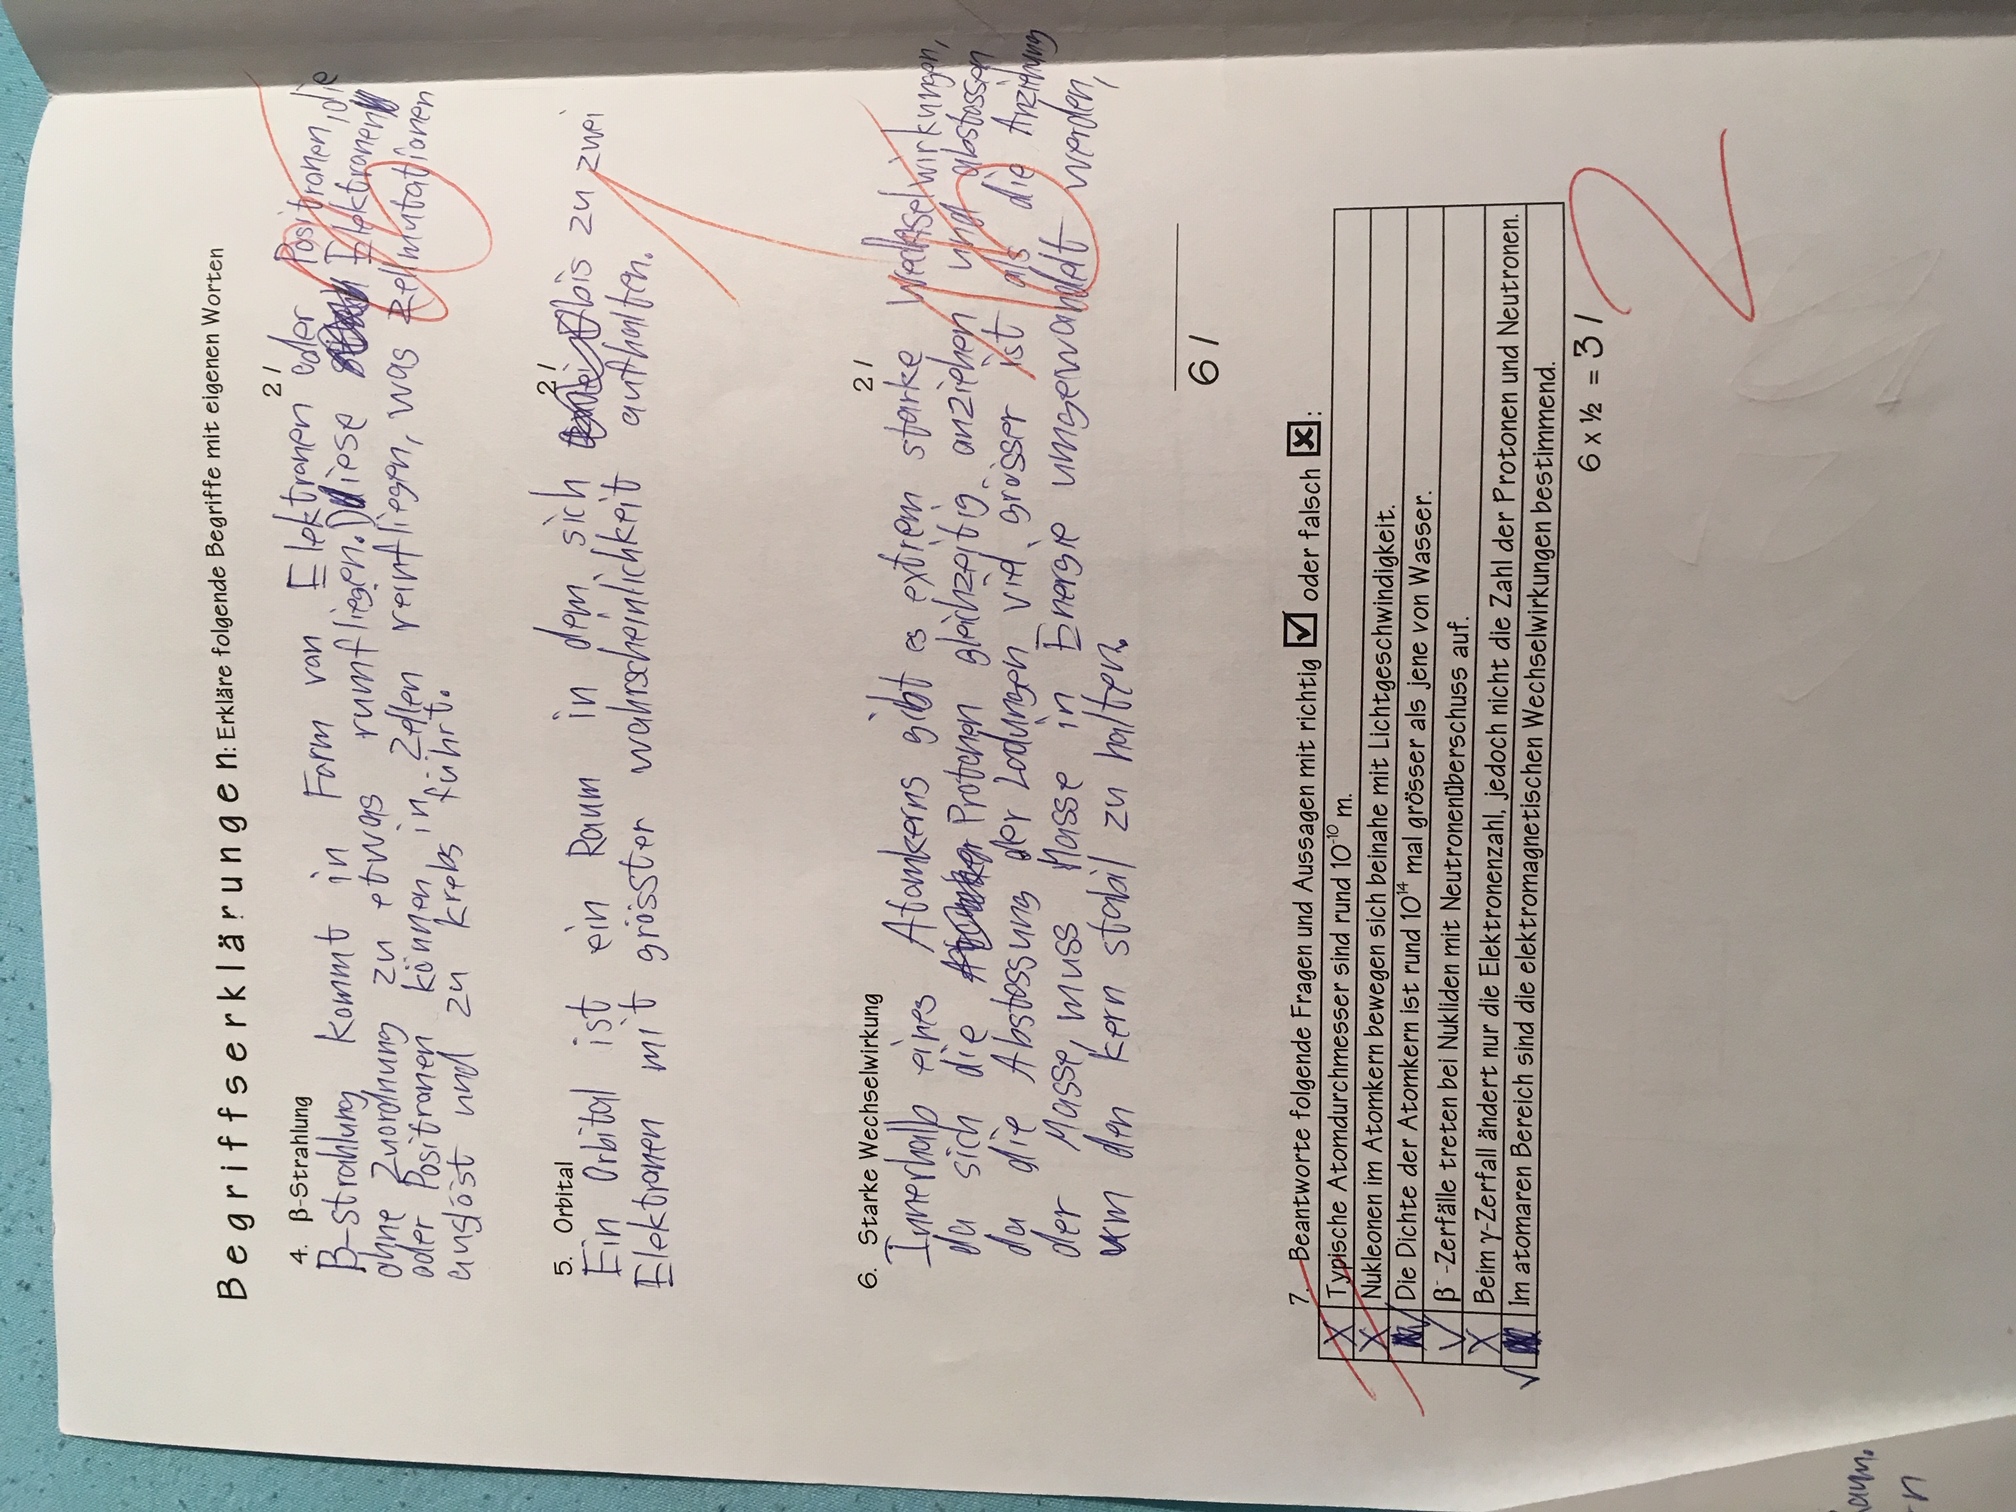 Begriffserklärungen: Erkläre folgende Begriffe mit eigenen Worten
4. β-Strahlung 2 /
B-strahlung kommt in Form von Elektronen oder Positronen, die
ohne Zuordnung zu etwas rumfliegen. Diese Elektronen
oder Positronen können in Zellen reinfliegen, was Zellmutationen
auslöst und zu krebs führt.
5. Orbital 2 /
Ein Orbital ist ein Raum in dem sich bis zu zwei
Elektronen mit grösster wahrscheinlichkeit aufhalten.
1
6. Starke Wechselwirkung 2 /
Innerhalb eines Atomkerns gibt es extrem starke Wechselwirkungen,
da sich die Protonen gleichzeitig anziehen und abstossen
da die Abstossung der Ladungen viel grösser ist als die Anziehung
der Masse, muss Masse in Energie umgewandelt werden,
um den kern stabil zu halten.
6 /
7. Beantworte folgende Fragen und Aussagen mit richtig ✓ oder falsch x:
X Typische Atomdurchmesser sind rund 10⁻¹⁰ m.
X Nukleonen im Atomkern bewegen sich beinahe mit Lichtgeschwindigkeit.
✓ Die Dichte der Atomkern ist rund 10¹⁴ mal grösser als jene von Wasser.
✓ β⁻-Zerfälle treten bei Nukliden mit Neutronenüberschuss auf.
X Beim γ-Zerfall ändert nur die Elektronenzahl, jedoch nicht die Zahl der Protonen und Neutronen.
✓ Im atomaren Bereich sind die elektromagnetischen Wechselwirkungen bestimmend.
6 x ½ = 3 /
2
Raum.